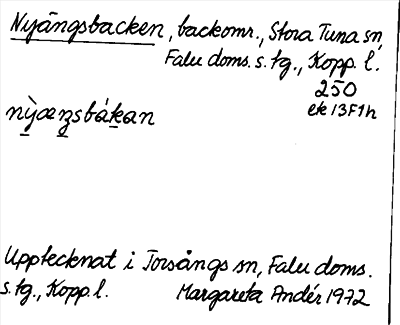 Nyängsbacken, backomr., Stora Tuna sn,
Falu doms. s. tg., Kopp. l.
250
ek 13F1h
nỳæŋsbákan
Upptecknat i Torsångs sn, Falu doms.
s. tg., Kopp. l. Margareta Andér 1972